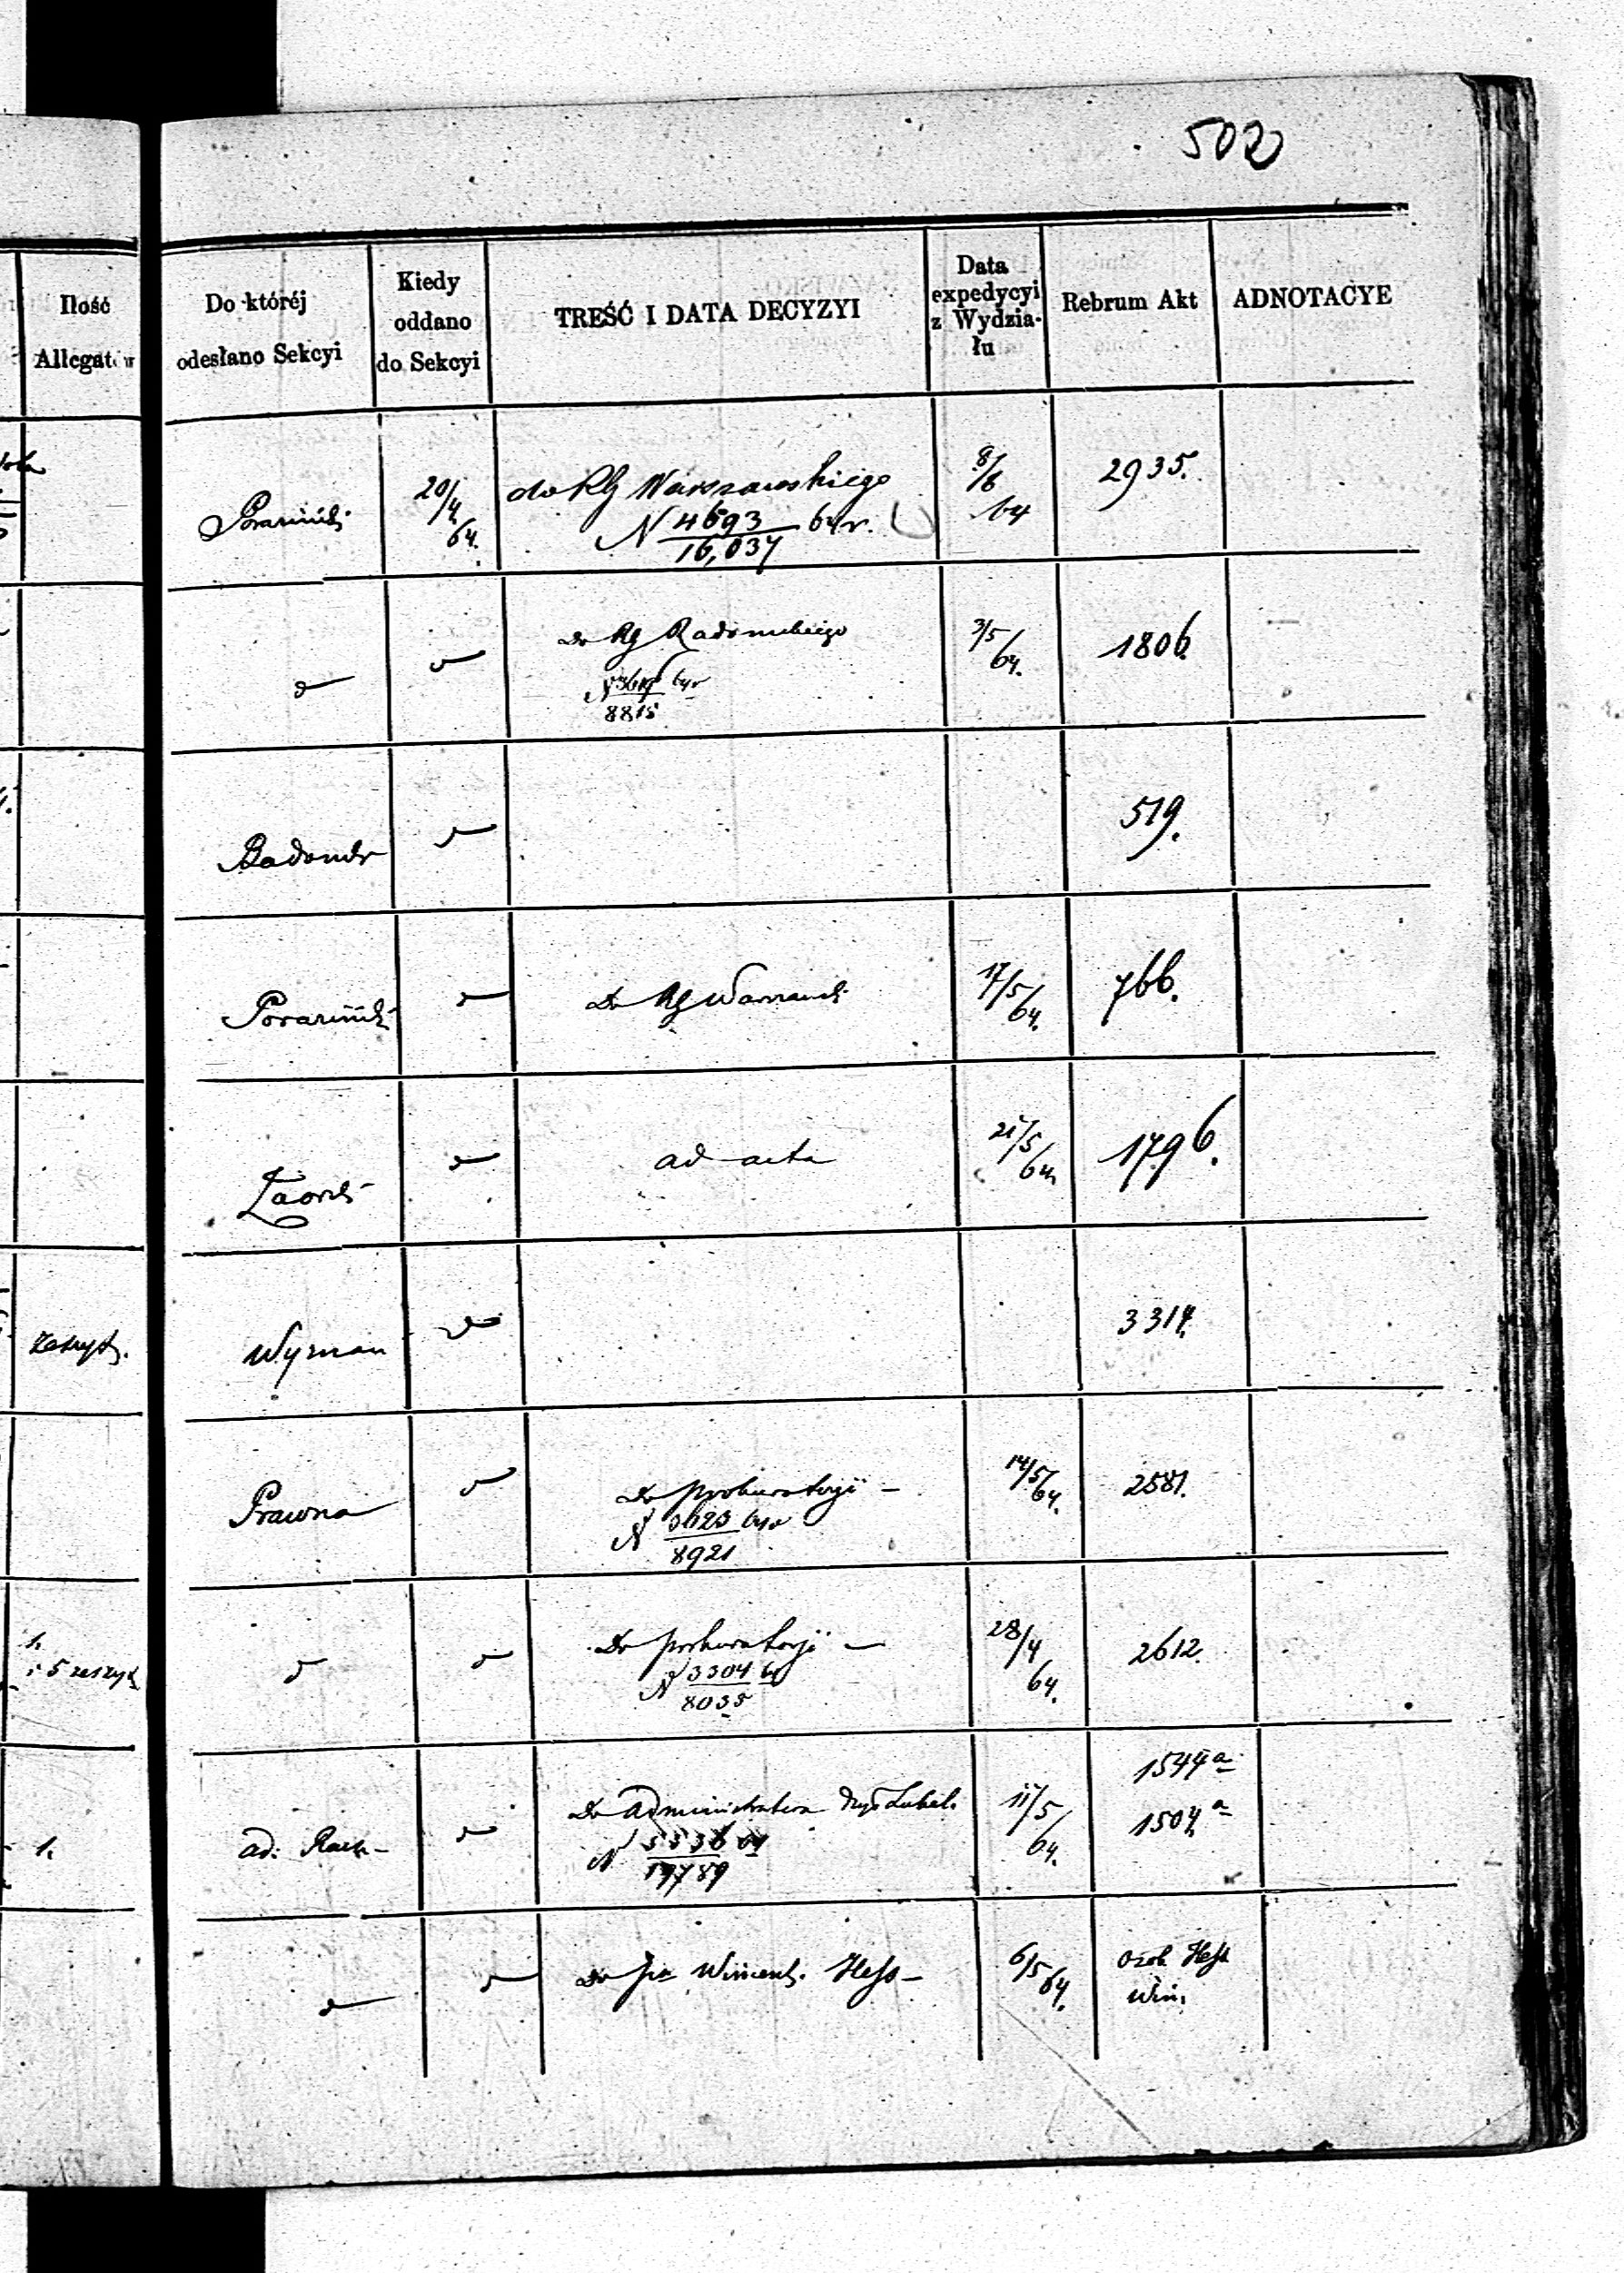 502
Ilość
Allegatów
Do któréj
odesłano Sekcyi
Kiedy
oddano
do Sekcyi
TREŚĆ I DATA DECYZYI
Data
expedycyi
z Wydzia-
łu
Rebrum Akt
ADNOTACYE
20/4 64.
do RG Warszawskiego
N 4693/16,037 64 r.
8/6 64
2935.
Do RG Radomskiego
8815
3/5 64.
1806.
519.
Do RG Warszawsk
17/5 64.
766.
ad acta
21/5 64
1796.
Wyznan
3314.
Prawna
Do prokuratoryi –
N 3623/8921 64 r
14/5 64.
2581.
5 zeszyt
Do prokuratoryi –
N 3304/8035 64
28/4 64.
2612.
1.
ad: Rach–
Do Administratora Lubel.
N 5536 64
11/5 64.
1544 a
1504 a
Do Wincent. Hess –
6/5 64.
Osob Hess
Win.